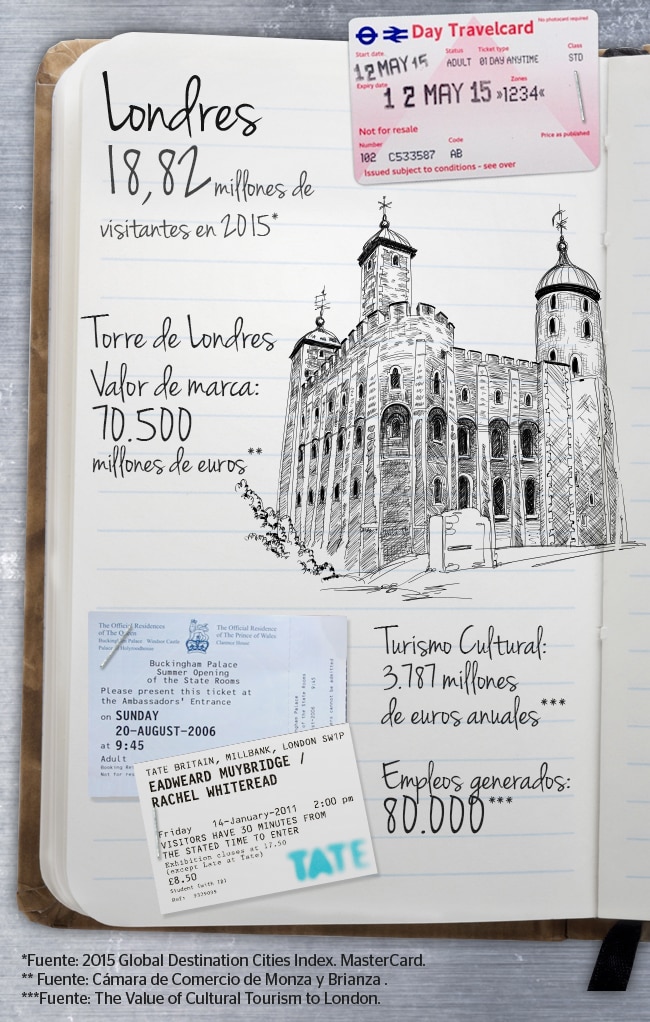 Day Travelcard
No photocard required
Start date
Status
Ticket type
Class
12 MAY 15
ADULT
01 DAY ANYTIME
STD
Expiry date
Zones
12 MAY 15 »1234«
Not for resale
Number
Code
Price as published
102 C533587 AB
Issued subject to conditions - see over
Londres
18,82 millones de
visitantes en 2015*
Torre de Londres
Valor de marca:
70.500
millones de euros**
The Official Residences
of The Queen
Palace Windsor Castle
The Official Residence
of The Prince of Wales
Clarence House
Buckingham Palace
Summer Opening
of the State Rooms
Please present this ticket at
the Ambassadors' Entrance
on SUNDAY
20-AUGUST-2006
at 9:45
Adult
TATE BRITAIN, MILLBANK, LONDON SW1P
EADWEARD MUYBRIDGE /
RACHEL WHITEREAD
Friday 14-January-2011 2:00 pm
VISITORS HAVE 30 MINUTES FROM
THE STATED TIME TO ENTER
Exhibition closes at 17.50
(except Late at Tate)
£8.50
Student (with ID)
TATE
Turismo Cultural:
3.787 millones
de euros anuales***
Empleos generados:
80.000***
*Fuente: 2015 Global Destination Cities Index. MasterCard.
** Fuente: Cámara de Comercio de Monza y Brianza .
***Fuente: The Value of Cultural Tourism to London.